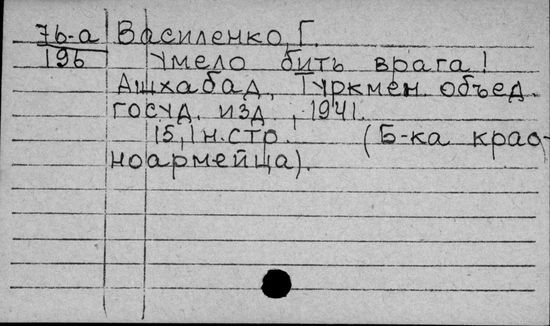 76-а Василенко, Г.
196 Умело бить врага!
Ашхабад, Туркмен. объед.
госуд. изд., 1941.
15,1 н.стр. (Б-ка крас-
ноармейца).